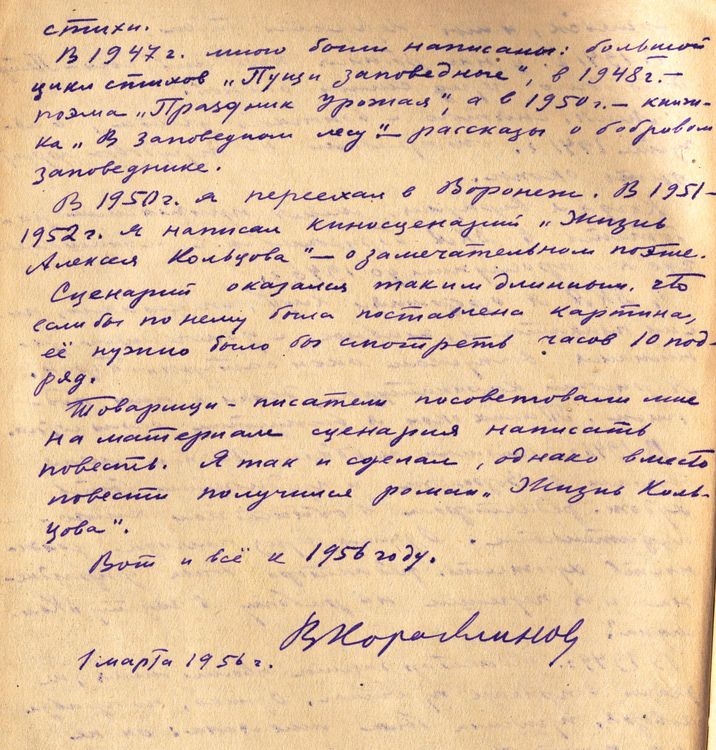 стихи.
В 1947 г. мною были написаны: большой
цикл стихов „Пущи заповедные“, в 1948 г. –
поэма „Праздник Урожая“, а в 1950 г. – книж-
ка „В заповедном лесу“ – рассказы о бобровом
заповеднике.
В 1950 г. я переехал в Воронеж. В 1951–
1952 г. я написал киносценарий „Жизнь
Алексея Кольцова“ – о замечательном поэте.
Сценарий оказался таким длинным, что
если бы по нему была поставлена картина,
её нужно было бы смотреть часов 10 под-
ряд.
Товарищи-писатели посоветовали мне
на материале сценария написать
повесть. Я так и сделал, однако вместо
повести получился роман „Жизнь Коль-
цова“.
Вот и всё к 1956 году.
ВКораблинов
1 марта 1956 г.